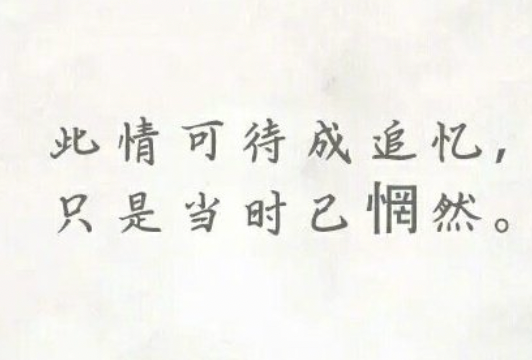 此情可待成追忆，
只是当时已惘然。